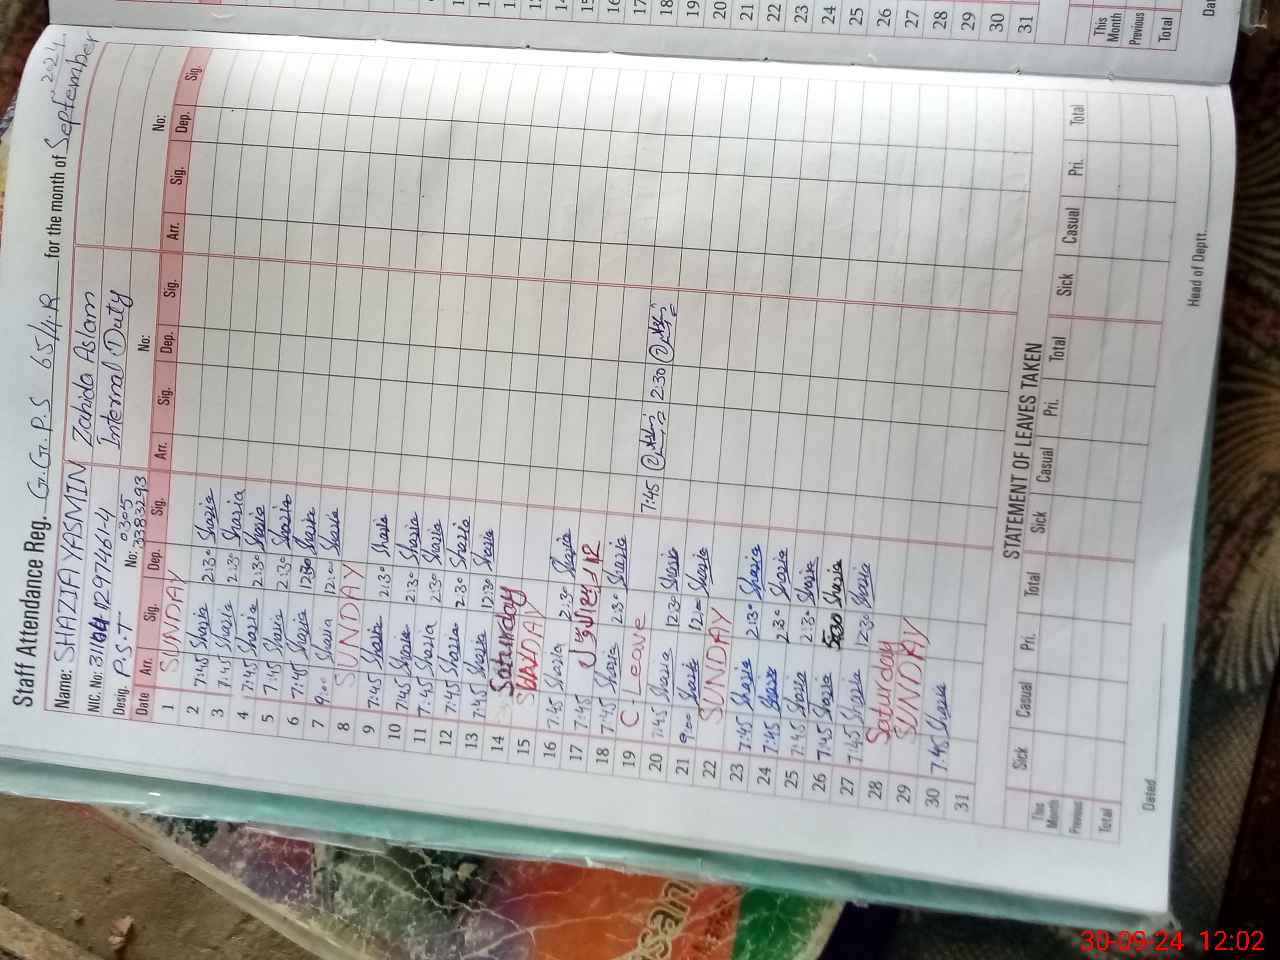 Staff Attendance Reg. G.G.P.S 65/4.R for the month of September 2024
Name: SHAZIA YASMIN Zahida Aslam
NIC. No: Internal Duty
Desig. P.S.T No: 0305 3383293 No: No:
Date Arr. Sig. Dep. Sig. Arr. Sig. Dep. Sig. Arr. Sig. Dep. Sig.
1 SUNDAY
2 7:45 Shazia 2:30 Shazia
3 7:45 Shazia 2:30 Shazia
4 7:45 Shazia 2:30 Shazia
5 7:45 Shazia 2:30 Shazia
6 7:45 Shazia 12:30 Shazia
7 9:00 Shazia 12:00 Shazia
8 SUNDAY
9 7:45 Shazia 2:30 Shazia
10 7:45 Shazia 2:30 Shazia
11 7:45 Shazia 2:30 Shazia
12 7:45 Shazia 2:30 Shazia
13 7:45 Shazia 12:30 Shazia
14 Saturday
15 SUNDAY
16 7:45 Shazia 2:30 Shazia
17 7:45
18 7:45 Shazia 2:30 Shazia
19 C. Leave 7:45 2:30
20 7:45 Shazia 12:30 Shazia
21 9:00 Shazia 12:00 Shazia
22 SUNDAY
23 7:45 Shazia 2:30 Shazia
24 7:45 Shazia 2:30 Shazia
25 7:45 Shazia 2:30 Shazia
26 7:45 Shazia Shazia
27 7:45 Shazia 12:30 Shazia
28 Saturday
29 SUNDAY
30 7:45 Shazia
31
STATEMENT OF LEAVES TAKEN
Sick Casual Pri. Total Sick Casual Pri. Total Sick Casual Pri. Total
This Month
Previous
Total
Dated Head of Deptt.
10
11
12
13
14
15
16
17
18
19
20
21
22
23
24
25
26
27
28
29
30
31
This Month
Previous
Total
san
30-09-24 12:02